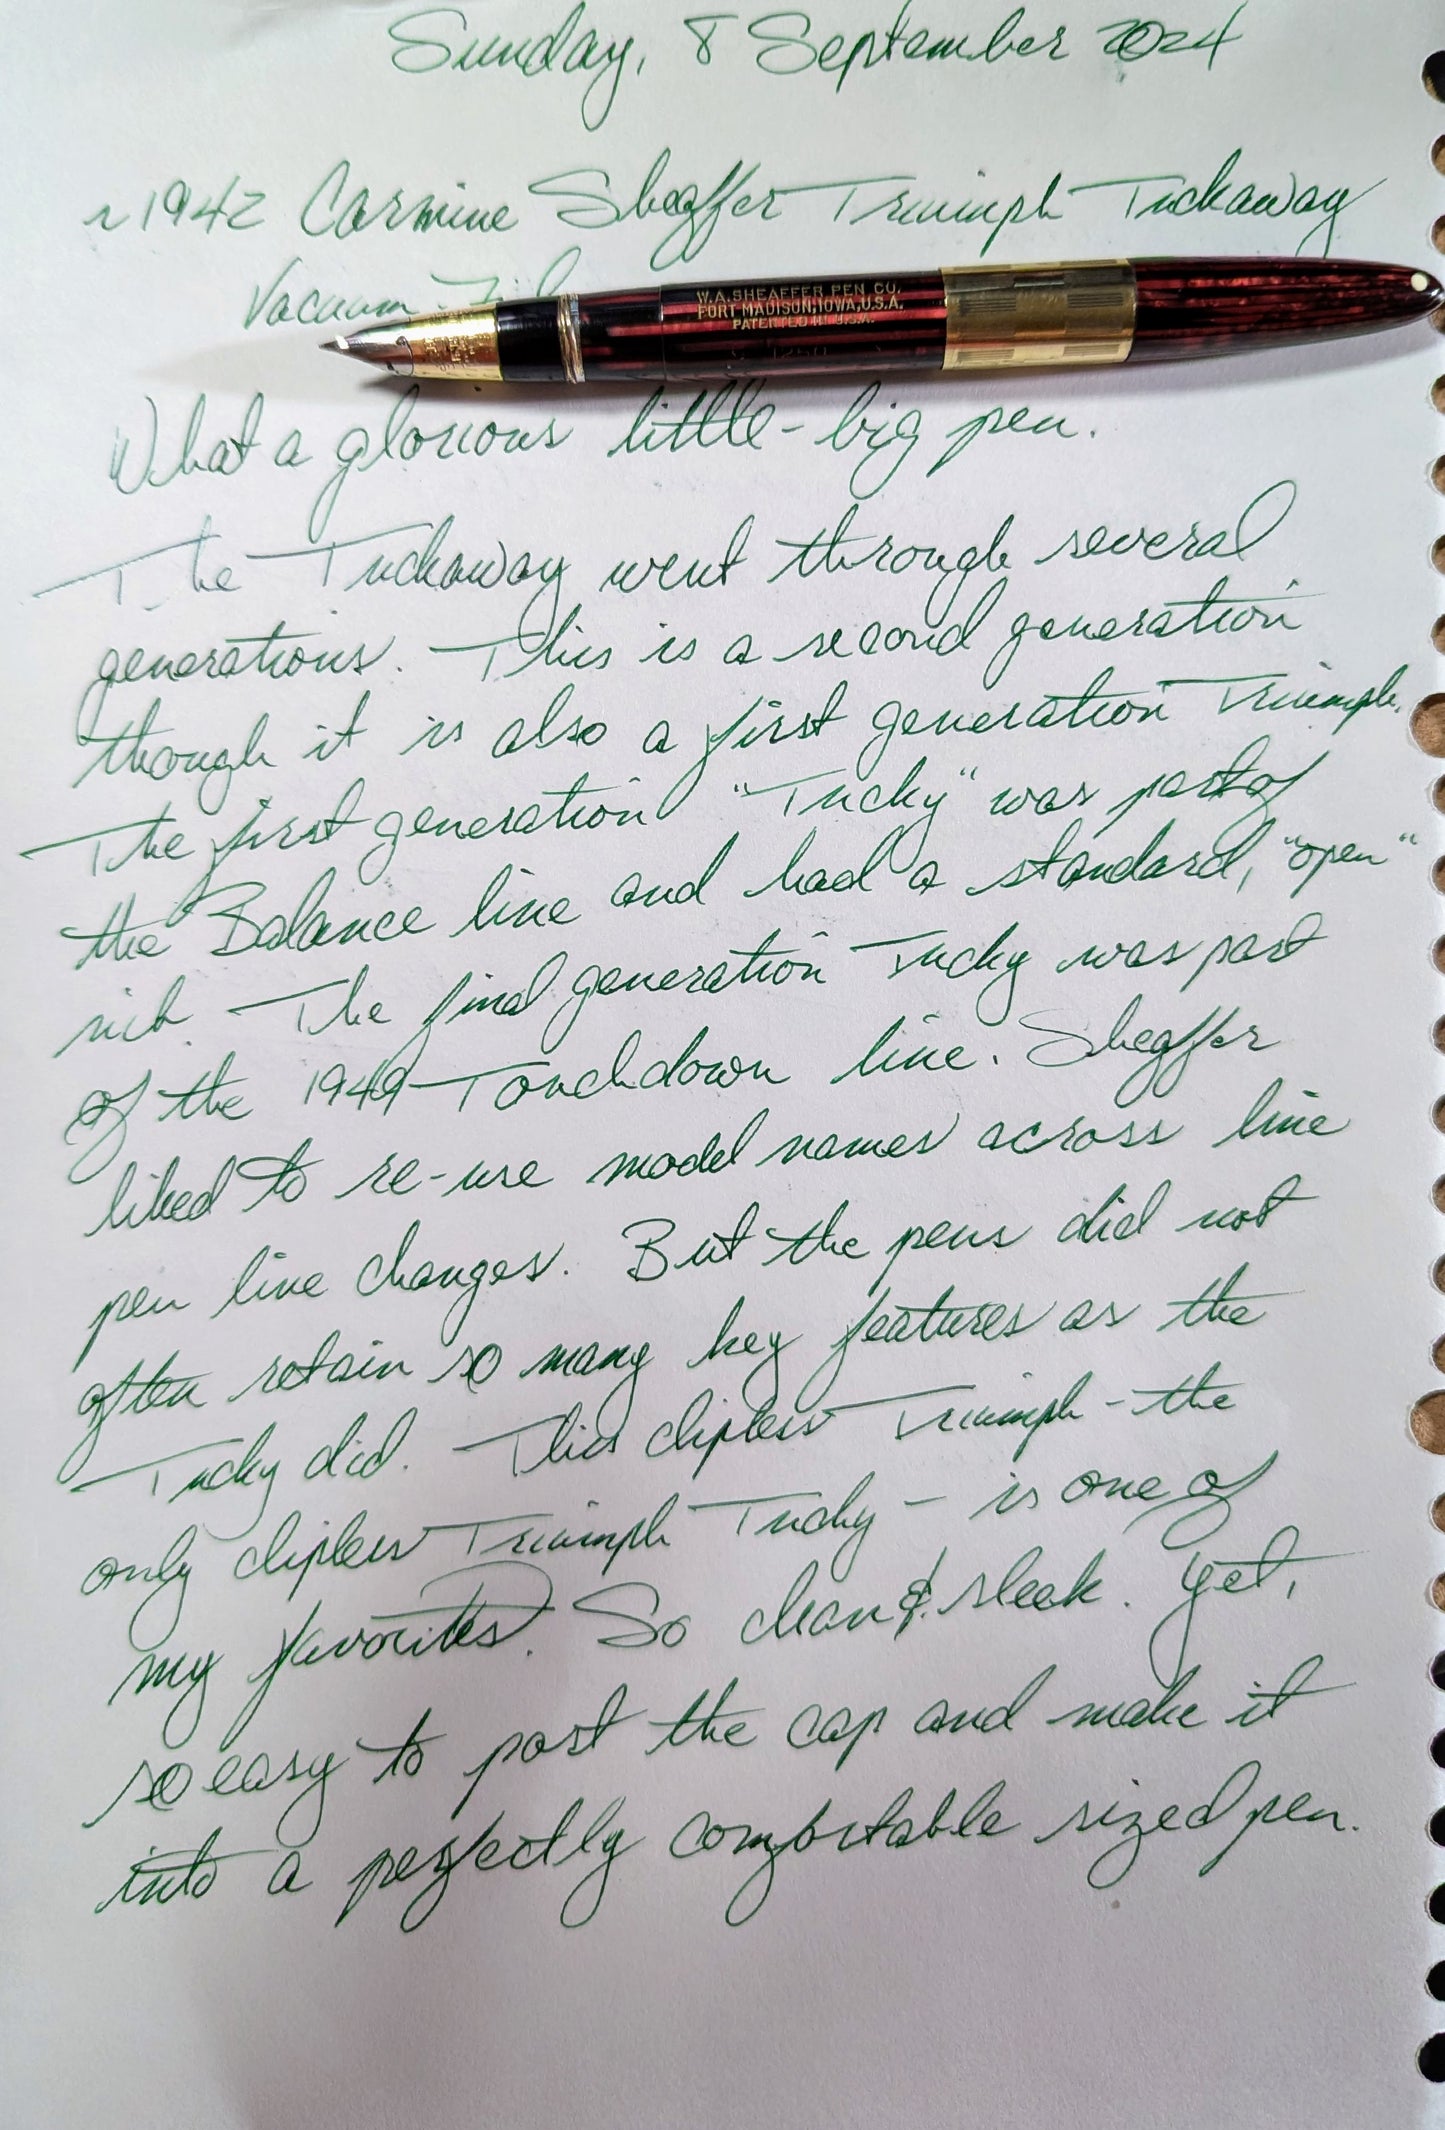 Sunday, 8 September 2024
~1942 Carmine Sheaffer Triumph Tuckaway
Vacuum-Fil
W.A. SHEAFFER PEN CO.
FORT MADISON, IOWA, U.S.A.
PATENTED IN U.S.A.
1250
What a glorious little-big pen.
The Tuckaway went through several
generations. This is a second generation
though it is also a first generation Triumph.
The first generation "Tucky" was part of
the Balance line and had a standard, "open"
nib. The final generation Tucky was part
of the 1949 Touchdown line. Sheaffer
liked to re-use model names across line
pen line changes. But the pens did not
often retain so many key features as the
Tucky did. This clipless Triumph - the
only clipless Triumph Tucky - is one of
my favorites. So clean & sleek. Yet,
so easy to post the cap and make it
into a perfectly comfortable sized pen.